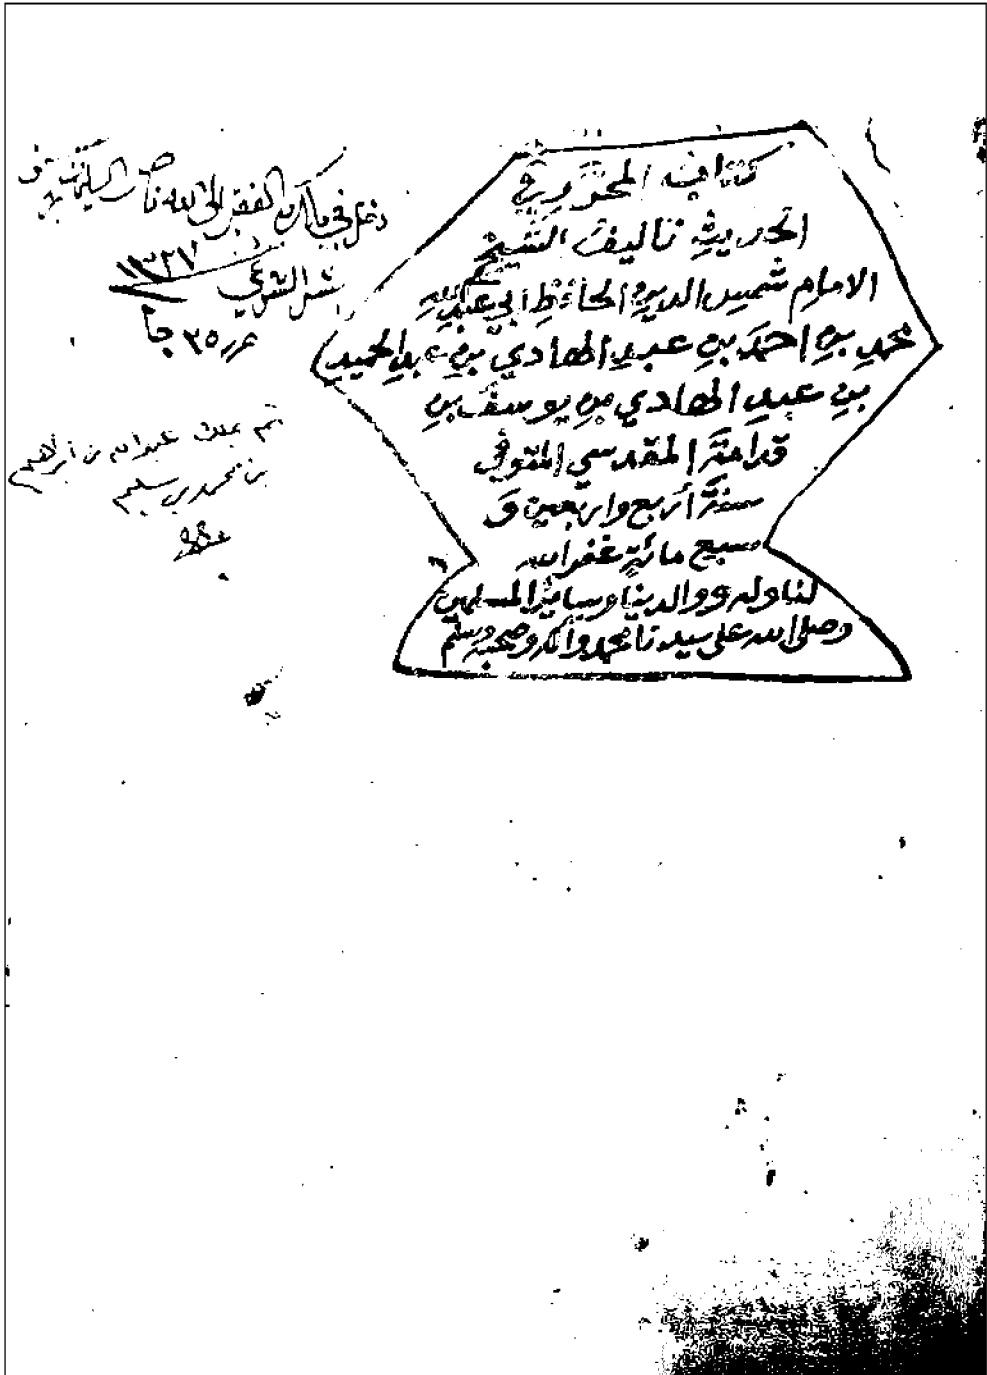 كتاب المحرر في
الحديث تاليف الشيخ
الامام شمس الدين الحافظ ابي عبد الله
محمد بن احمد بن عبد الهادي بن عبد الحميد
بن عبد الهادي بن يوسف بن
قدامة المقدسي المتوفى
سنة أربع واربعين و
سبع مائة غفر الله
لنا وله ووالدينا وسائر المسلمين
وصلى الله على سيدنا محمد وآله وصحبه وسلم
دخل في ملك الفقير الى الله
الشرعي ١٣٢٧
٣٥ جا
ثم ملك عبدالله بن ابراهيم
بن محمد بن سليم